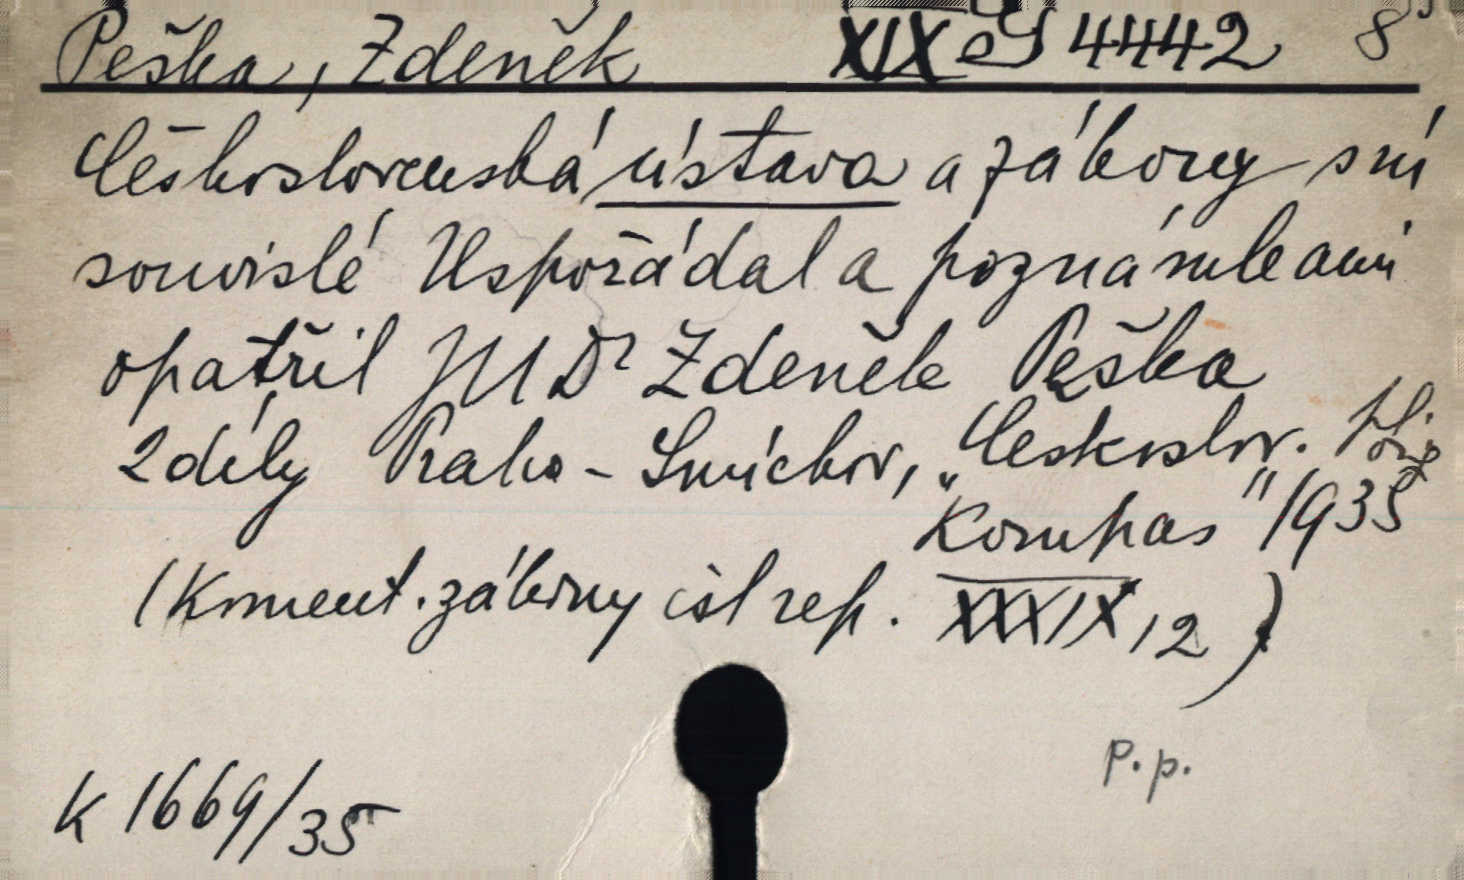 Peška, Zdeněk XIX J 4442 8°
Československá ústava a zákony s ní
souvislé Uspořádal a poznámkami
opatřil JUDr Zdeněk Peška
2 díly Praha - Smíchov, „Českoslov.
Kompas" 1935
(Koment. zákony čsl rep. XXXIX, 12)
P. p.
K 1669/35